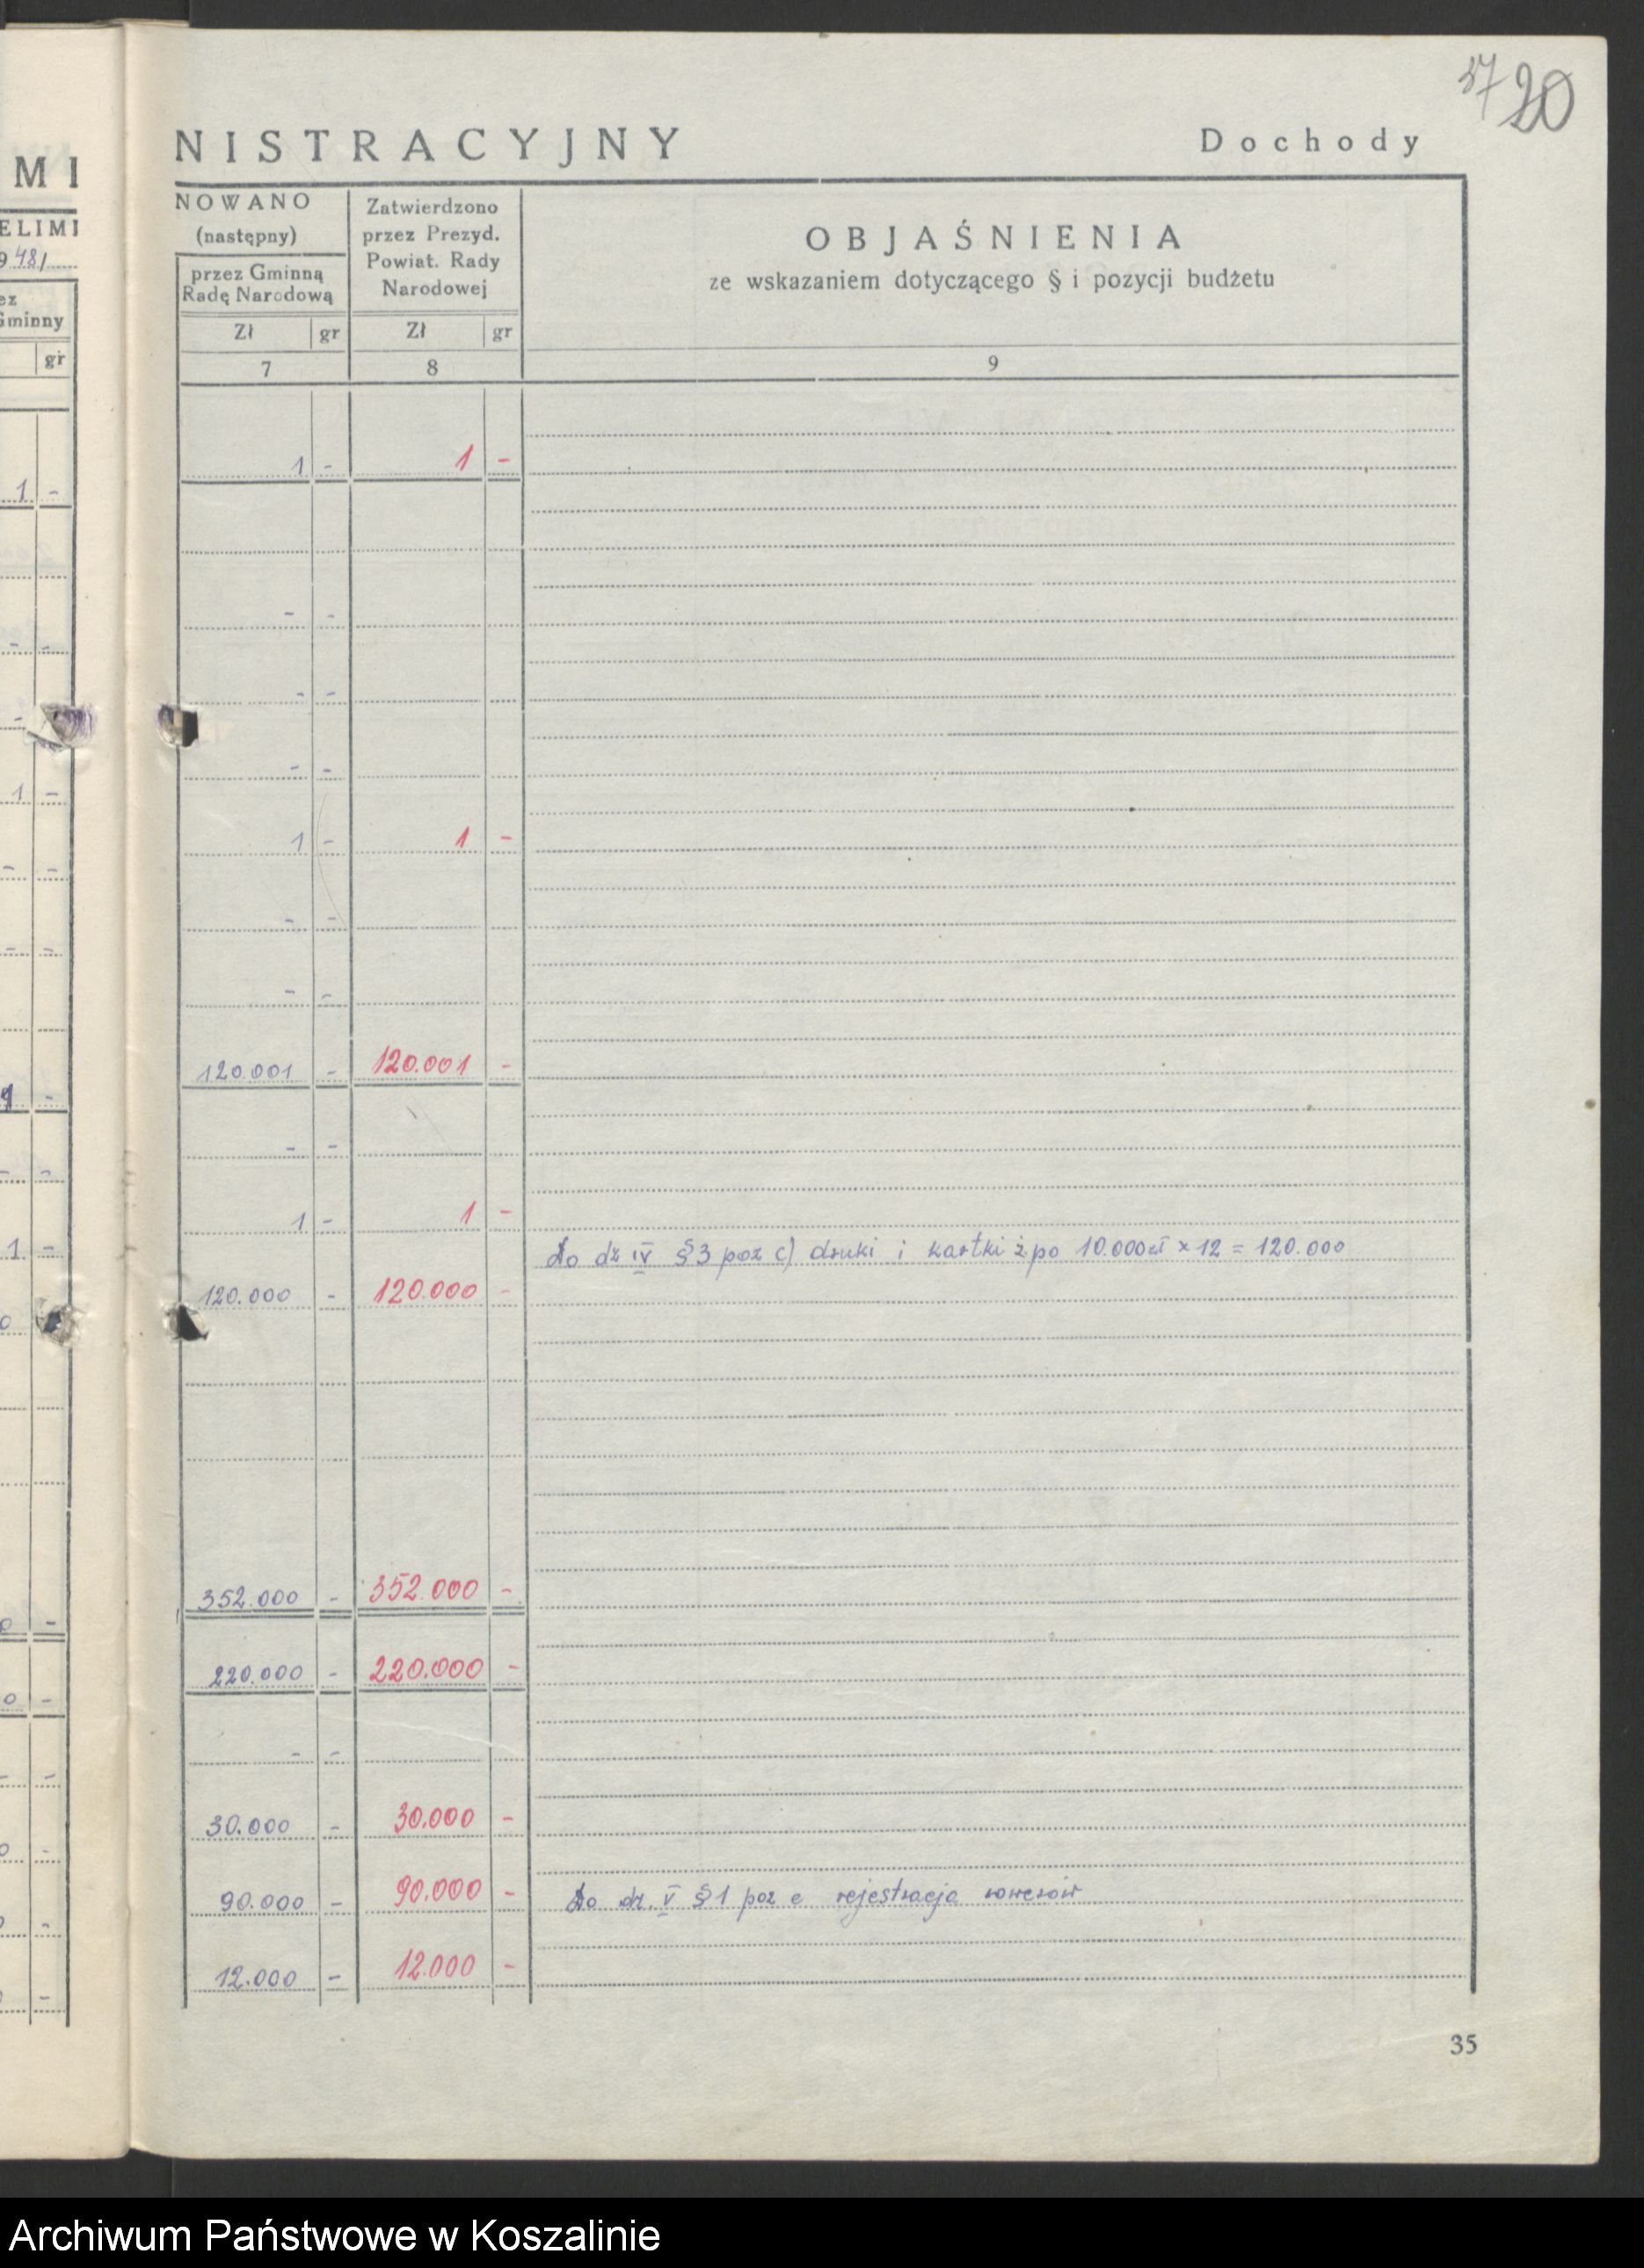 37 20
NISTRACYJNY Dochody
MI
ELIMI
948/
ez
Gminny
gr
NOWANO
(następny)
przez Gminną
Radę Narodową
Zł gr
7
Zatwierdzono
przez Prezyd.
Powiat. Rady
Narodowej
Zł gr
8
OBJAŚNIENIA
ze wskazaniem dotyczącego § i pozycji budżetu
9
1 - 1 -
1 -
- -
- -
- -
1 -
1 - 1 -
- -
- -
120.001 - 120.001 -
- -
1 - 1 -
1 -
Do dz IV § 3 poz c) druki i kartki ż. po 10.000 zł × 12 = 120.000
120.000 - 120.000 -
352.000 - 352.000 -
220.000 - 220.000 -
- -
30.000 - 30.000 -
90.000 - 90.000 - Do dz. V § 1 poz e rejestracja rowerów
12.000 - 12.000 -
35
Archiwum Państwowe w Koszalinie